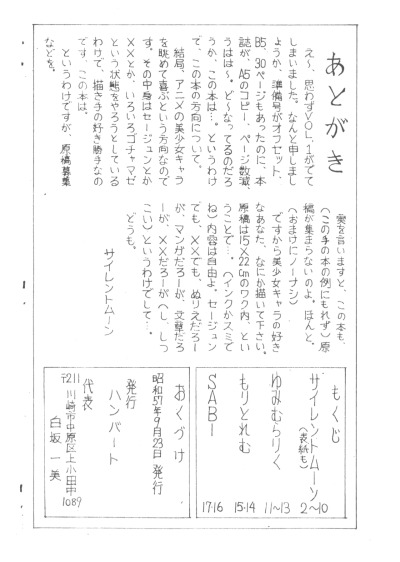 あとがき
え〜、思わずVOL.1がでて
しまいました。なんと申しまし
ょうか、準備号がオフセット、
B5、30ページもあったのに、本
誌が、A5のコピー、ページ数減、
うはは〜。ど〜なってるのだろ
うか、この本は…。というわけ
で、この本の方向について。
結局、アニメの美少女キャラ
を眺めて喜ぶという方向なので
す。その中身はセージュンとか
××とか、いろいろゴチャマゼ
という状態をやろうとしている
わけで、描き手の好き勝手なの
です、この本は。
というわけですが、原稿募集
などを。
実を言いますと、この本も、
(この手の本の例にもれず)原
稿が集まらないのよ。ほんと。
(おまけにノーナシ)
ですから美少女キャラの好き
なあなた、なにか描いて下さい。
原稿は15×22cmのワク内、とい
うことで…。(インクかスミで
ね)内容は自由よ。セージュン
でも、××でも、ぬりえだろー
が、マンガだろーが、文章だろ
ーが、××だろーが(し、しつ
こい)というわけでして…、
どうも。
サイレントムーン
もくじ
サイレントムーン
(表紙も) 2〜10
ゆみむらりく 11〜13
もりとれむ 15・14
SABI 17・16
おくづけ
昭和57年9月23日 発行
発行
ハンバート
代表
〒211 川崎市中原区上小田中1089
白坂 一美